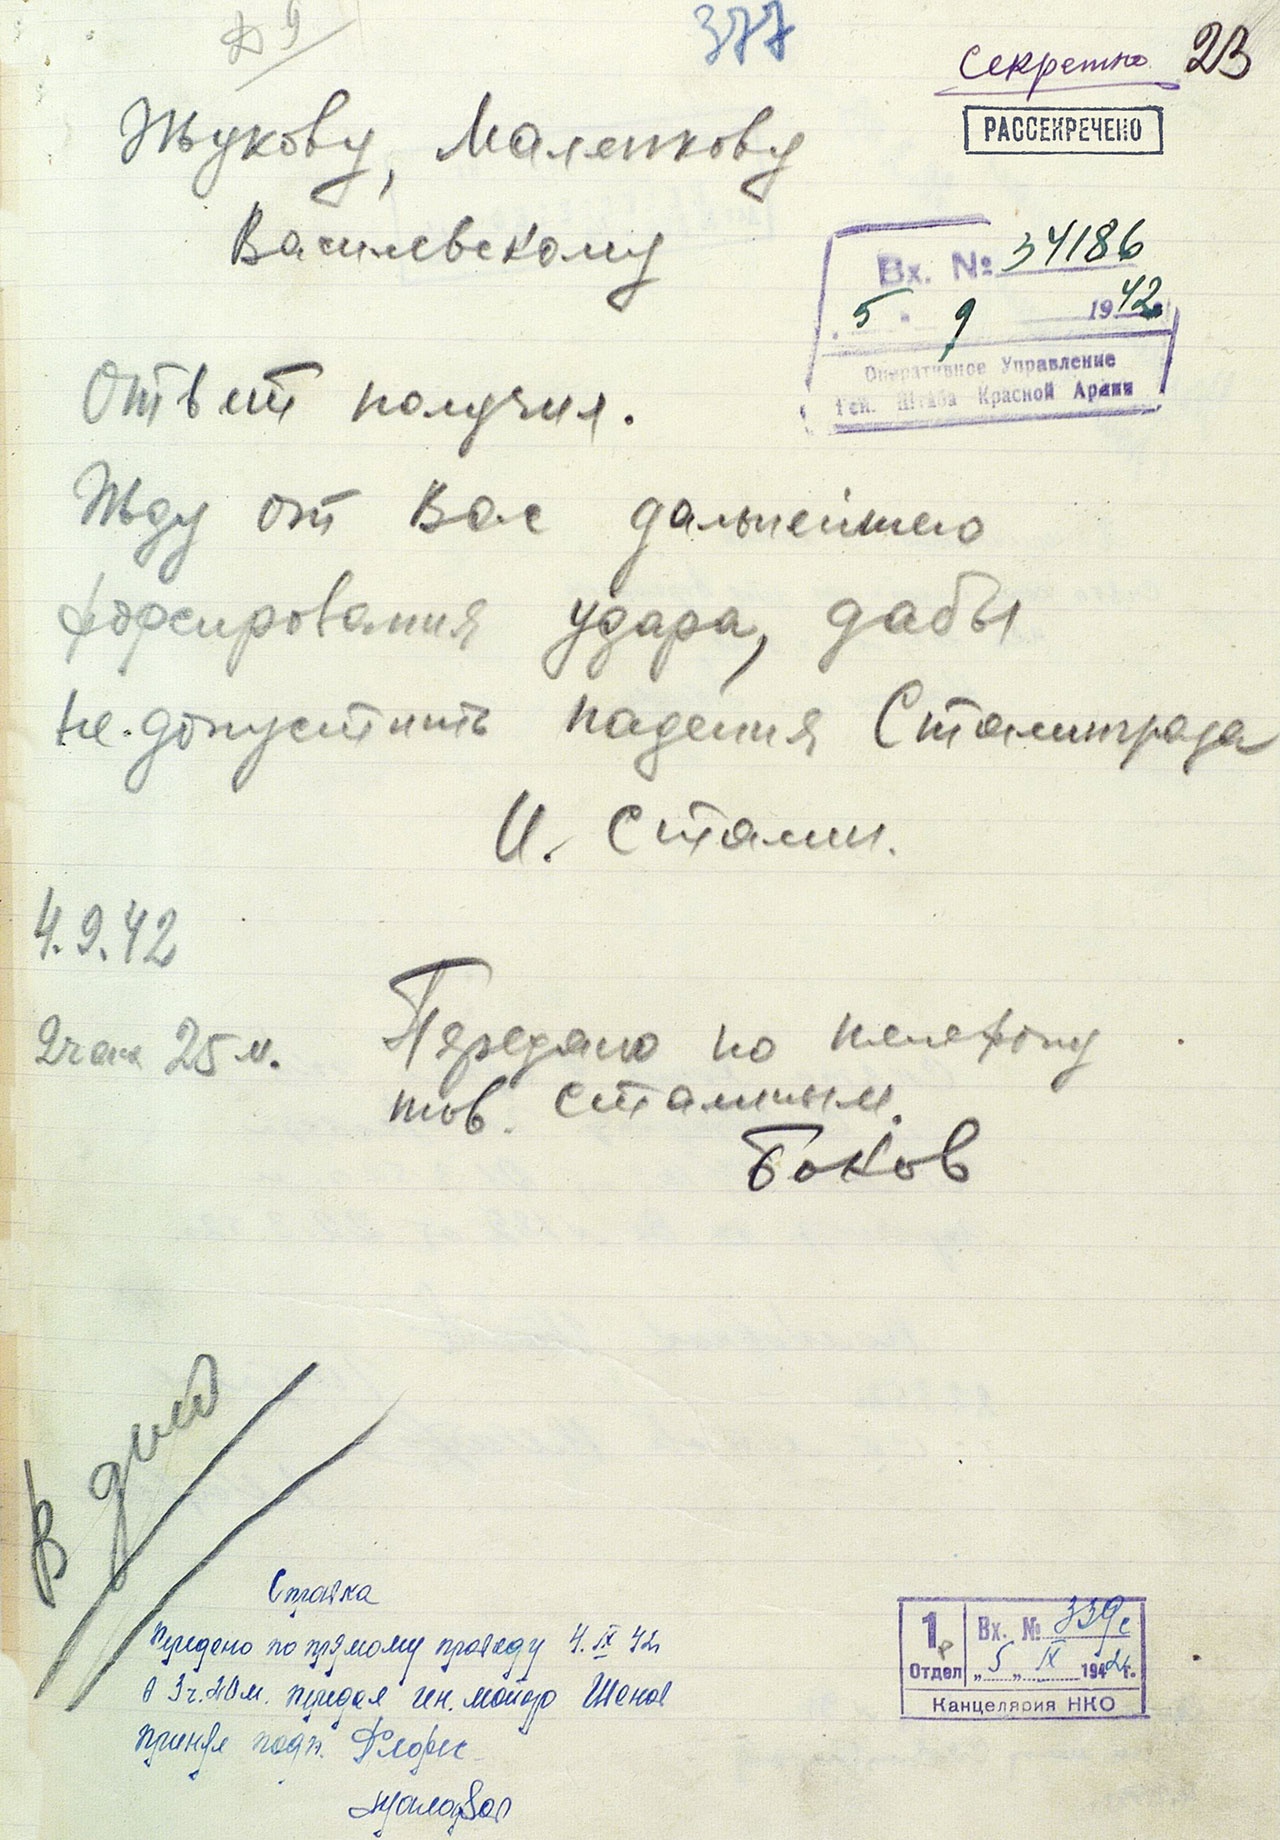 377
Секретно 23
РАССЕКРЕЧЕНО
Жукову, Маленкову
Василевскому
Вх. № 34186
5. 9 1942
Оперативное Управление
Ген. Штаба Красной Армии
Ответ получил.
Жду от Вас дальнейшего
форсирования удара, дабы
не допустить падения Сталинграда
И. Сталин.
4.9.42
2 часа 25 м.
Передано по телефону
тов. Сталиным.
Боков
В дело
Справка
Передано по прямому проводу 4.IX 42
в 3 ч. 20 м. передал ген. майор
Принял подп.
1 Отдел
Вх. № 339с
„5„ IX 1942 г.
Канцелярия НКО